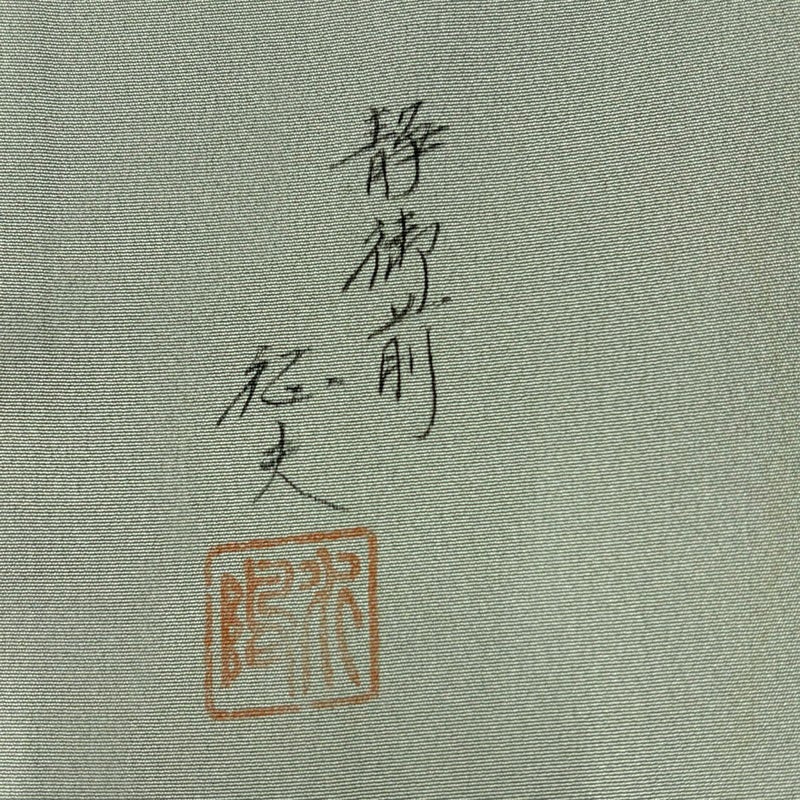 静御前
征夫